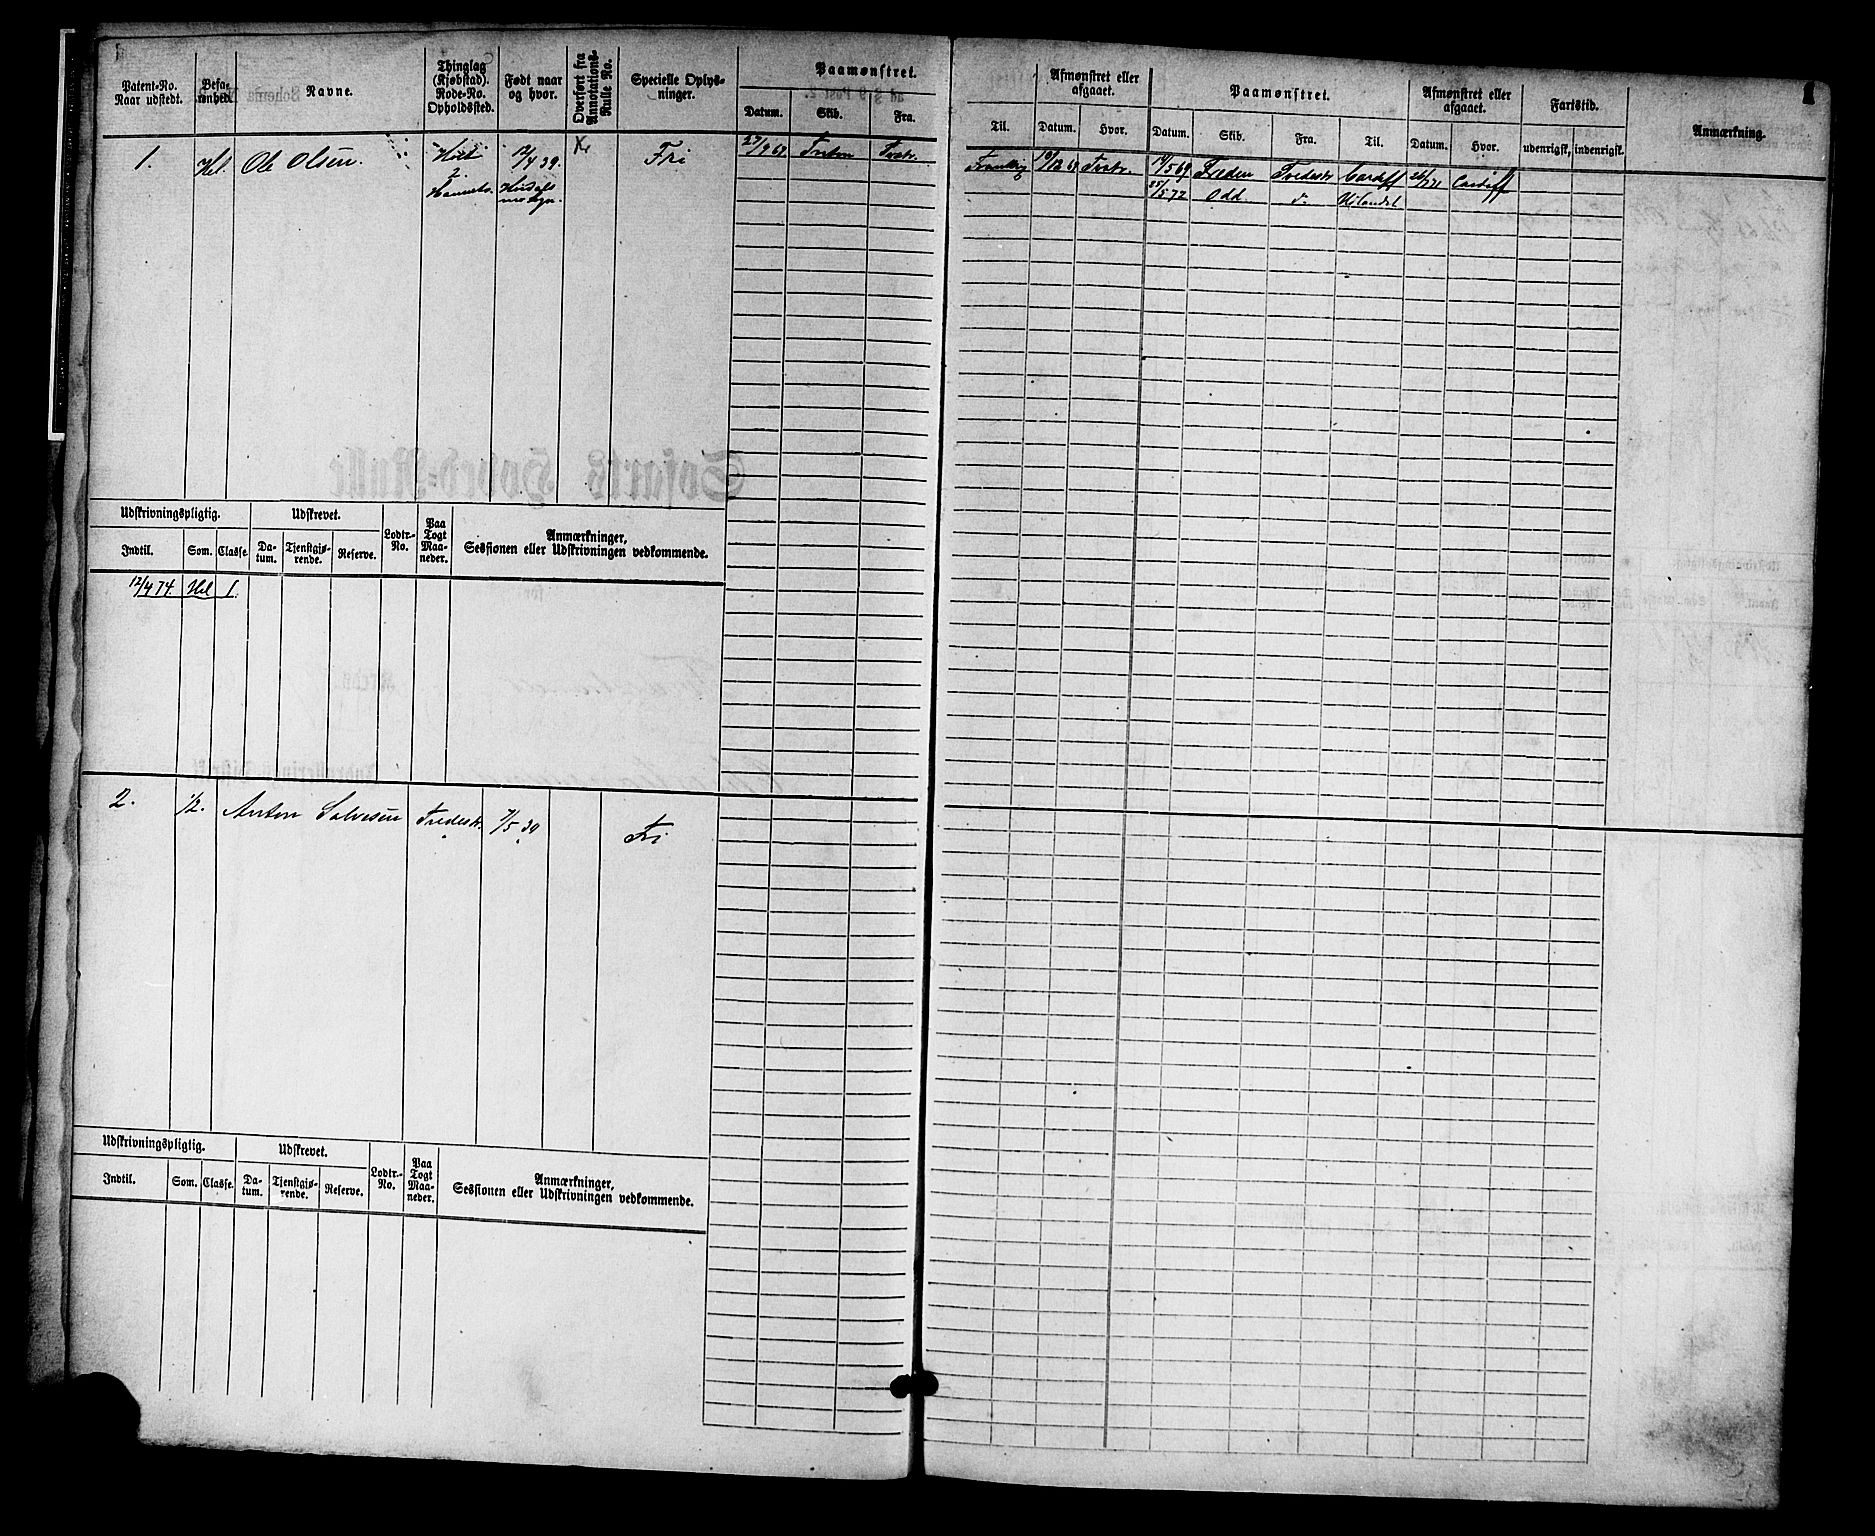 1
Patent-No. Naar udstedt.
Befarenhed.
Navne.
Thinglag (Kjøbstad). Rode-No. Opholdssted.
Født naar og hvor.
Overført fra Annotations-Rulle No.
Specielle Oplysninger.
Paamønstret.
Datum. Skib. Fra.
Til.
Afmønstret eller afgaaet.
Datum. Hvor.
Paamønstret.
Datum. Skib. Fra. Til.
Afmønstret eller afgaaet.
Datum. Hvor.
Fartstid.
udenrigsk. indenrigsk.
Anmærkning.
1. Hel. Ole Olsen. 2. 12/4 39. Fri 27/9 67 Triton Tvstr. 19/5 69 Freden Tvedestr Cardiff Cardiff
25/5 72 Odd d Udlandet
Udskrivningspligtig. Udskrevet. Lodtr.-No. Paa Togt Maaneder. Anmærkninger, Sessionen eller Udskrivningen vedkommende.
Indtil. Som. Classe. Datum. Tjenstgjørende. Reserve.
12/4 74. Hel 1.
2. 1/2. Anton Salvesen Tvedestr. 7/5 30 Fri
Udskrivningspligtig. Udskrevet. Lodtr.-No. Paa Togt Maaneder. Anmærkninger, Sessionen eller Udskrivningen vedkommende.
Indtil. Som. Classe. Datum. Tjenstgjørende. Reserve.